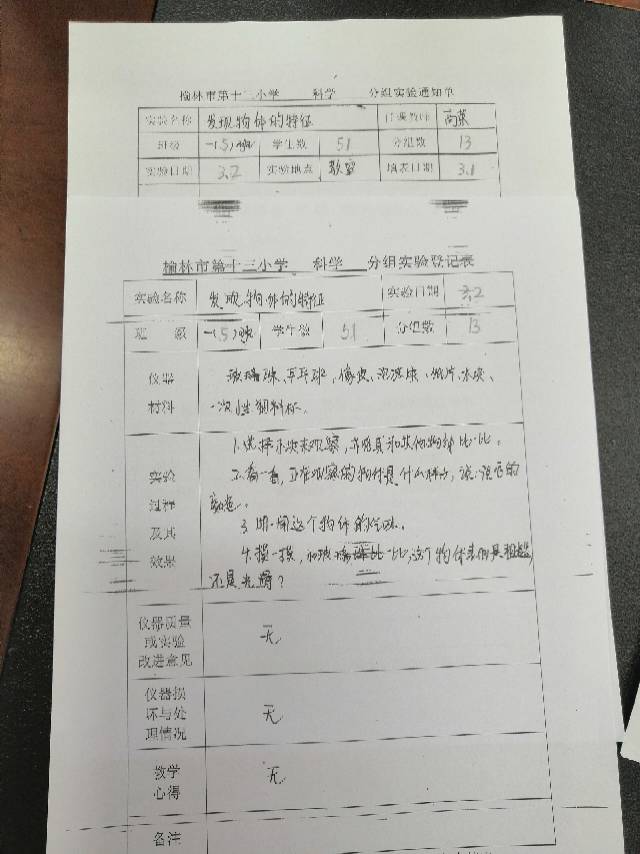 榆林市第十二小学 科学 分组实验通知单
实验名称 发现物体的特征 任课教师 高荣
班级 一(5) 学生数 51 分组数 13
实验日期 3.2 实验地点 教室 填表日期 3.1
榆林市第十三小学 科学 分组实验登记表
实验名称 发现物体的特征 实验日期 3.2
班 级 一(5) 学生数 51 分组数 13
仪器
材料
玻璃珠、乒乓球、橡皮、泡沫块、纸片、木块、
一次性塑料杯。
实验
过程
及其
效果
1.选择木块来观察,并将其和其他物体比一比。
2.看一看,正在观察的物体是什么样的,说一说它的
颜色。
3.闻一闻这个物体的气味。
4.摸一摸,和玻璃珠比一比,这个物体表面是粗糙
还是光滑?
仪器质量
或实验
改进意见
无
仪器损
坏与处
理情况
无
教学
心得
无
备注